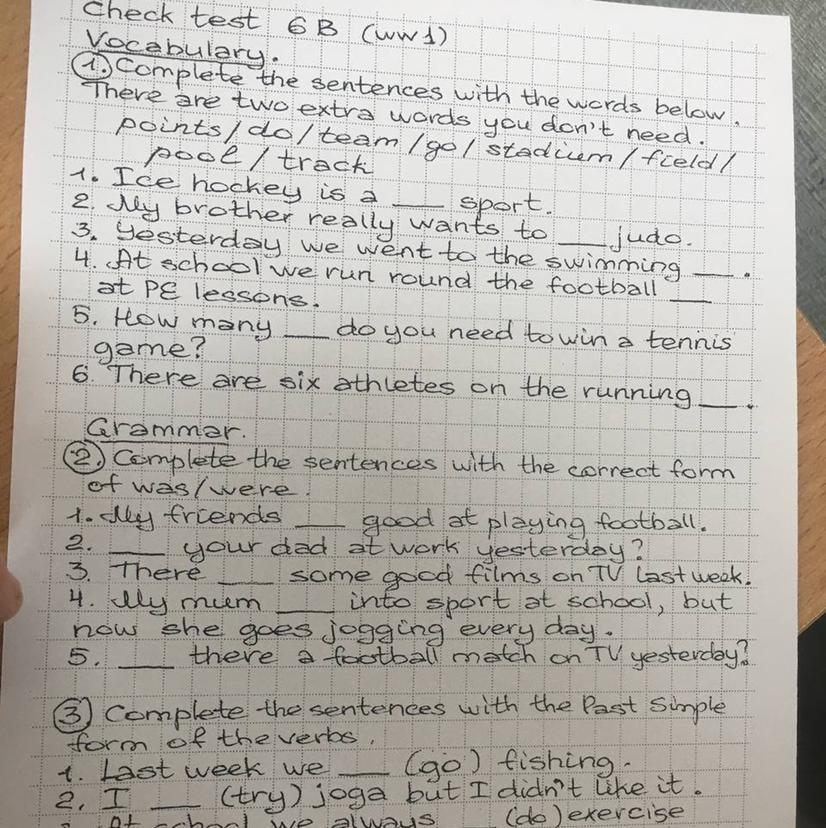 Check test 6B (WW1)
Vocabulary.
1. Complete the sentences with the words below.
There are two extra words you don't need.
points/do/team/go/stadium/field/
pool/track
1. Ice hockey is a ___ sport.
2. My brother really wants to ___ judo.
3. Yesterday we went to the swimming ___.
4. At school we run round the football ___
at PE lessons.
5. How many ___ do you need to win a tennis
game?
6. There are six athletes on the running ___.
Grammar.
2. Complete the sentences with the correct form
of was/were.
1. My friends ___ good at playing football.
2. ___ your dad at work yesterday?
3. There ___ some good films on TV last week.
4. My mum ___ into sport at school, but
now she goes jogging every day.
5. ___ there a football match on TV yesterday?
3 Complete the sentences with the Past Simple
form of the verbs.
1. Last week we ___ (go) fishing.
2. I ___ (try) joga but I didn't like it.
At school we always ___ (do) exercise